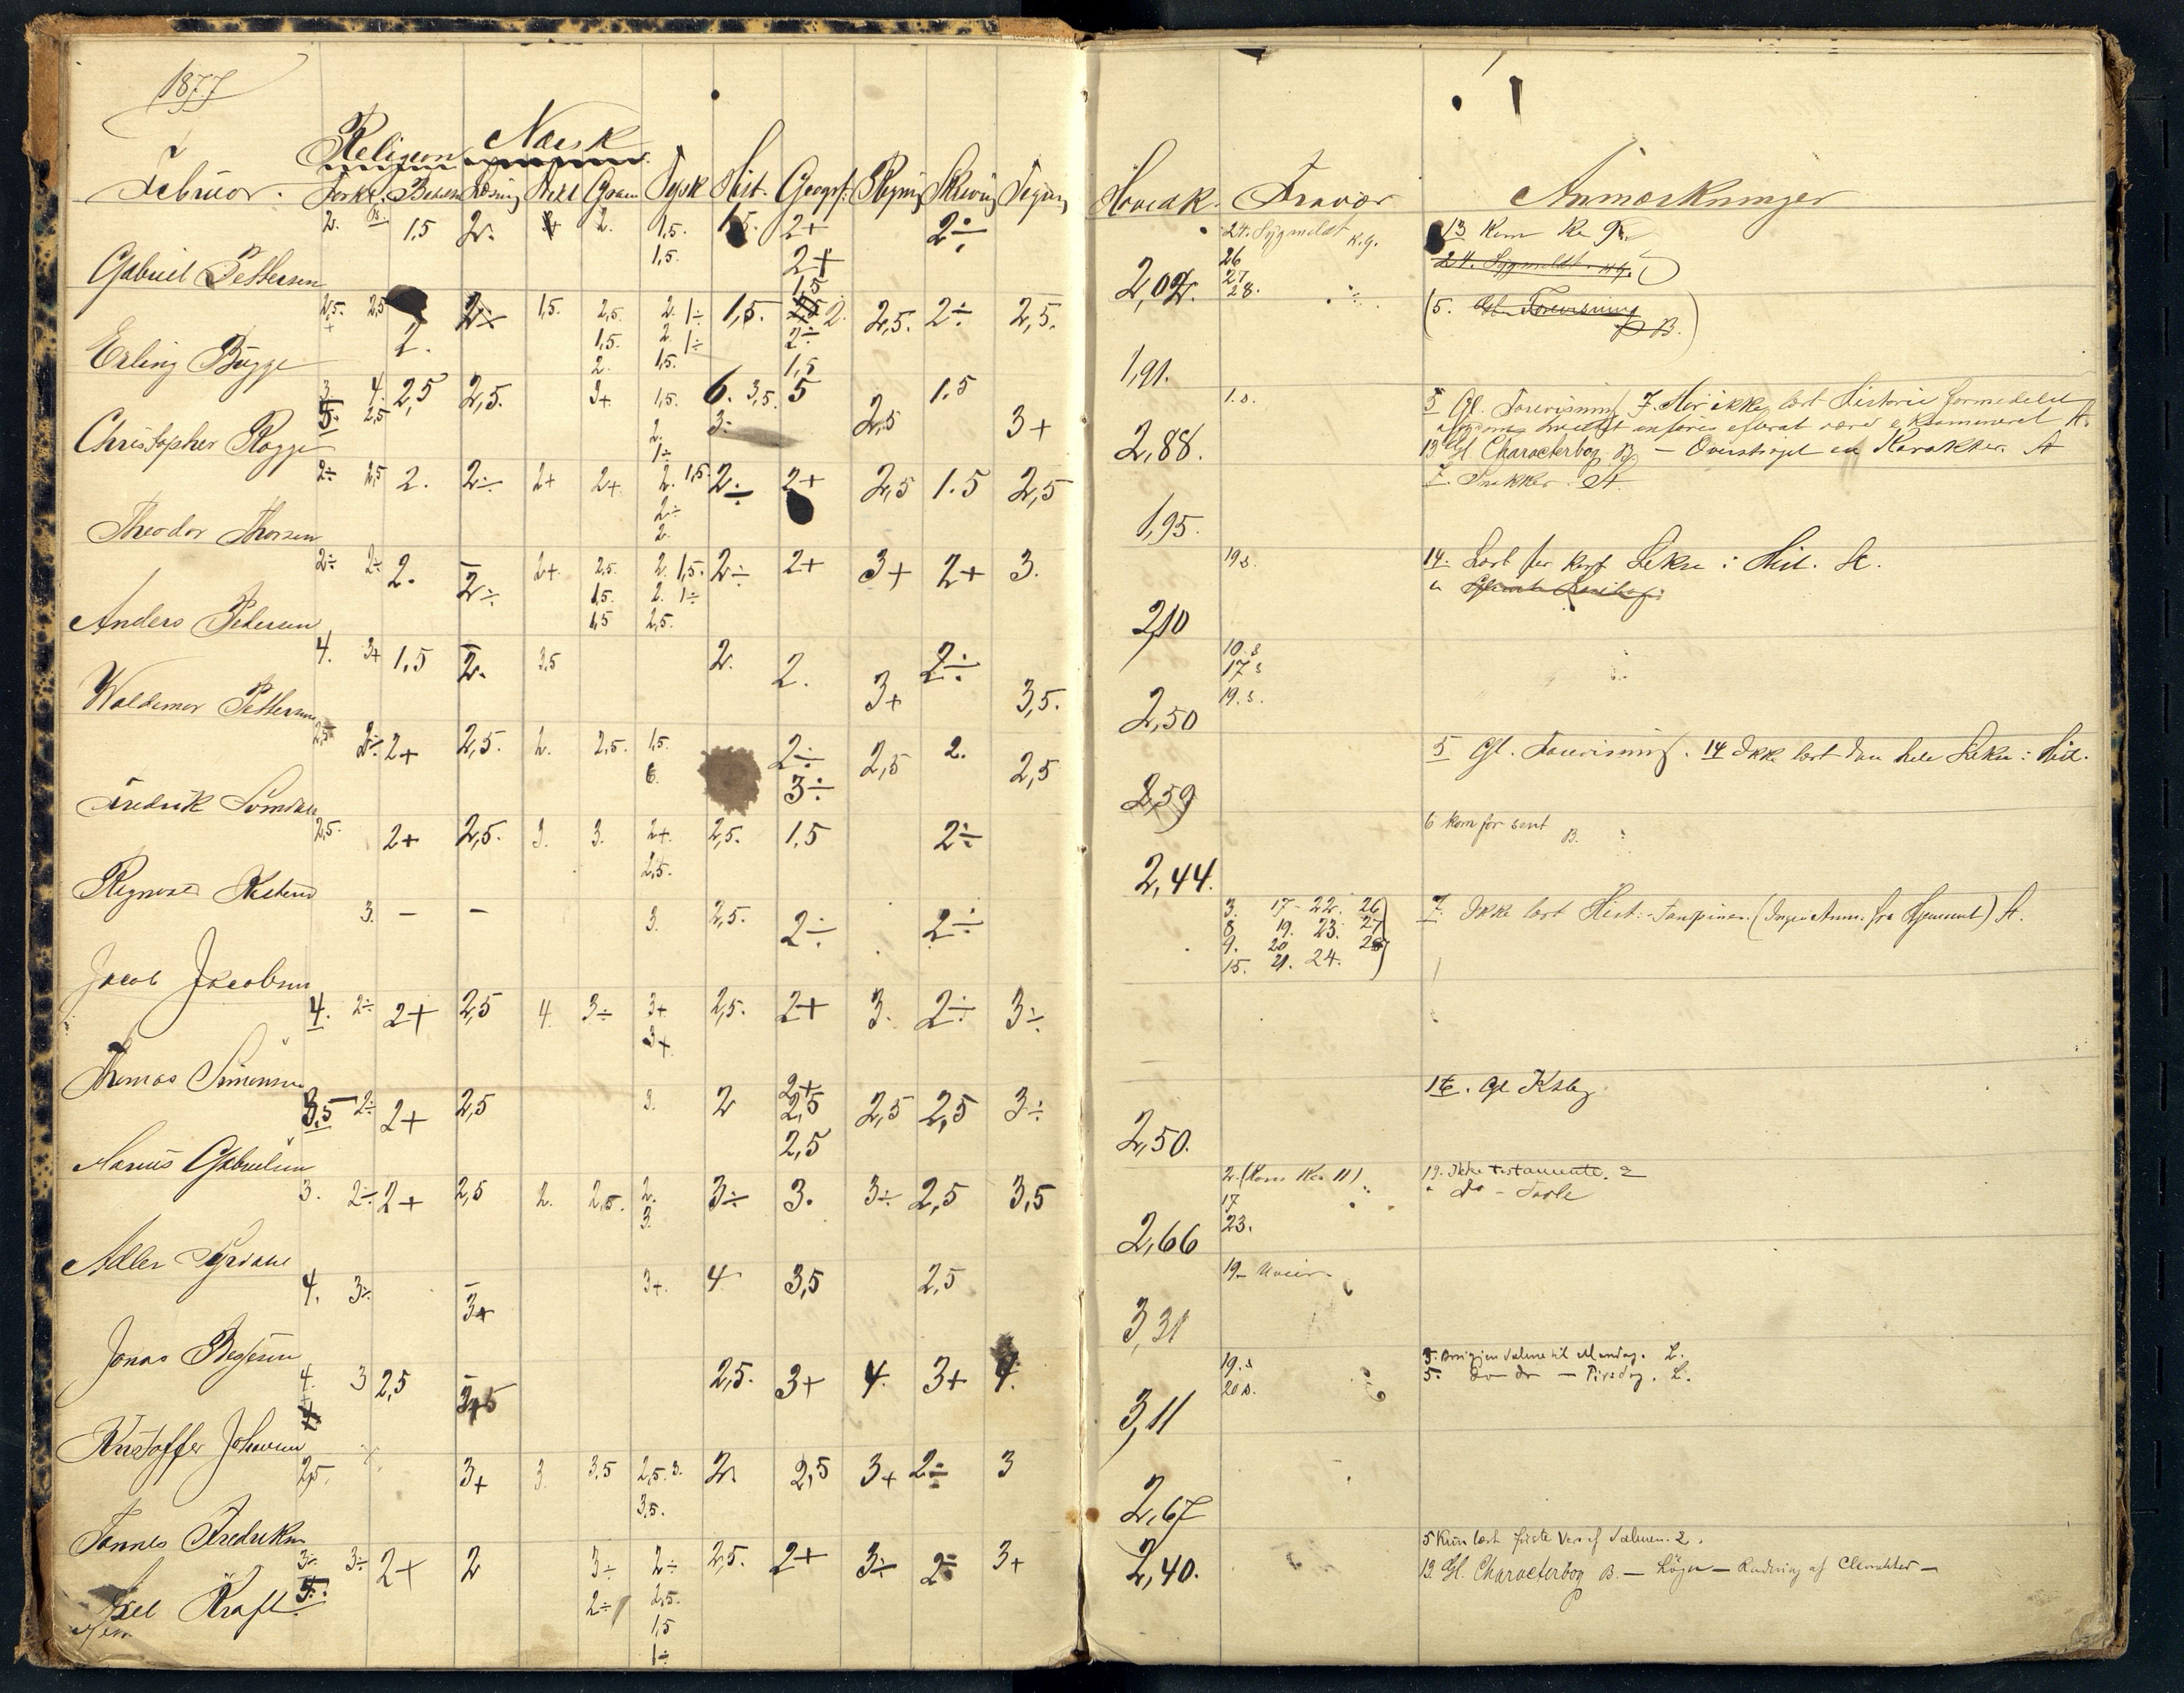 1877
Religion Norsk
Februar. Forkl. Bibelh Læsning Diktt Gram Tysk Hist. Geogrf: Regning Skrivning Tegning
2. B. 1,5 2. 3+ 2. 1,5. 1,5. 2+ 2÷
1,5. 2+
Gabriel Pettersen 1,5
2,5. 2,5 2÷ 1,5. 2,5. 2. 1÷ 1,5. 2. 2,5. 2÷ 2,5.
+ 2. 1,5. 2. 1÷ 2÷
Erling Bugge 2. 1,5. 1,5
3. 4. 2,5 2,5. 3+ 1,5. 6. 3,5. 5 1.5
5. 2,5 2. 3. 2,5 3+
Christopher Rogge 1÷
2÷ 2,5 2. 2÷ 2+ 2+ 2. 1,5. 2÷ 2+ 2,5 1.5 2,5
2÷
Theodor Thorsen 2.
2÷ 2÷ 2. 2÷ 2+. 2,5. 2. 1,5. 2÷ 2+ 3+ 2+ 3.
1,5. 2. 1÷
Anders Petersen 1,5 2,5.
4. 3+ 1,5 2. 3,5 2. 2. 2÷
Waldemar Pettersen 3+ 3,5.
2,5 2÷ 2+ 2,5. 2. 2,5. 1,5. 2÷ 2,5 2. 2,5
6. 3÷
Fredrik
2,5. 2+ 2,5. 3. 3. 2+. 2,5. 1,5 2÷
2,5.
3. – – 3. 2,5. 2÷ 2÷
Jacob Jacobsen
4. 2÷ 2+ 2,5 4. 3÷ 3+ 2,5. 2+ 3. 2÷ 3÷
3+
Thomas Simonsen
3,5 2÷ 2+ 2,5 3. 2 2+ 2,5 2,5 3÷
2,5
2,5
Marius Gabrielsen
3. 2÷ 2+ 2,5 2. 2,5. 2. 3÷ 3. 3÷ 2,5 3,5
3.
Adler
4. 3÷ 3+ 3+. 4 3,5 2,5
Jonas
4. 3 2,5 3,5 2,5. 3+ 4. 3+ 4.
Kristoffer Johnsen
2,5. 3+ 3. 3,5 2,5. 3. 2. 2,5 3+ 2÷ 3
3,5.
Tønnes Fredriksen
3÷ 3÷ 2+ 2 3÷ 2÷ 2,5. 2+ 3÷ 2÷ 3+
5. 2÷ 2,5.
Axel Kraft 1,5
1÷
Hovedk. Fravær Anmærkninger
24. Sygmeldt K.G. 13 Kom Kl 9
26 24. Sygmeldt K.G.
2,02. 27
28. (5. Gl. Forevisning B.)
1,91.
1.s. 5 Gl. Forevisning 7. Har ikke lært Historie formedelst
2,88. 13 Gl. Characterbog B – Overstreget en Karakter. A
7. Snakker. A.
1,95.
19s. 14. Lært for kort Lekse i Hist. A.
2,10
10.s
17 s
2,50 19.s.
5 Gl. Forevisning. 14 Ikke lært den hele Lekse i Hist.
2,59
6 kom for sent B.
2,44.
3. 17– 22. 26 7. Ikke lært Hist. (Ingen Anm. fra Hjemmet) A.
8 19. 23. 27
9. 20 28
15. 21. 24.
1te. Gl
2,50.
2. (Kom Kl 11) 19. Ikke testamente. 2
17 " do –
2,66 23.
19–
3,31
19.s 5. Salme til Mandag. L.
20s. 5. do do – Tirsdag. L.
3,11
2,67
5 Kun lært første Vers af Salmen. 2.
2,40. 13. Gl. Characterbog B. – Løgn – Radering af Charakter –